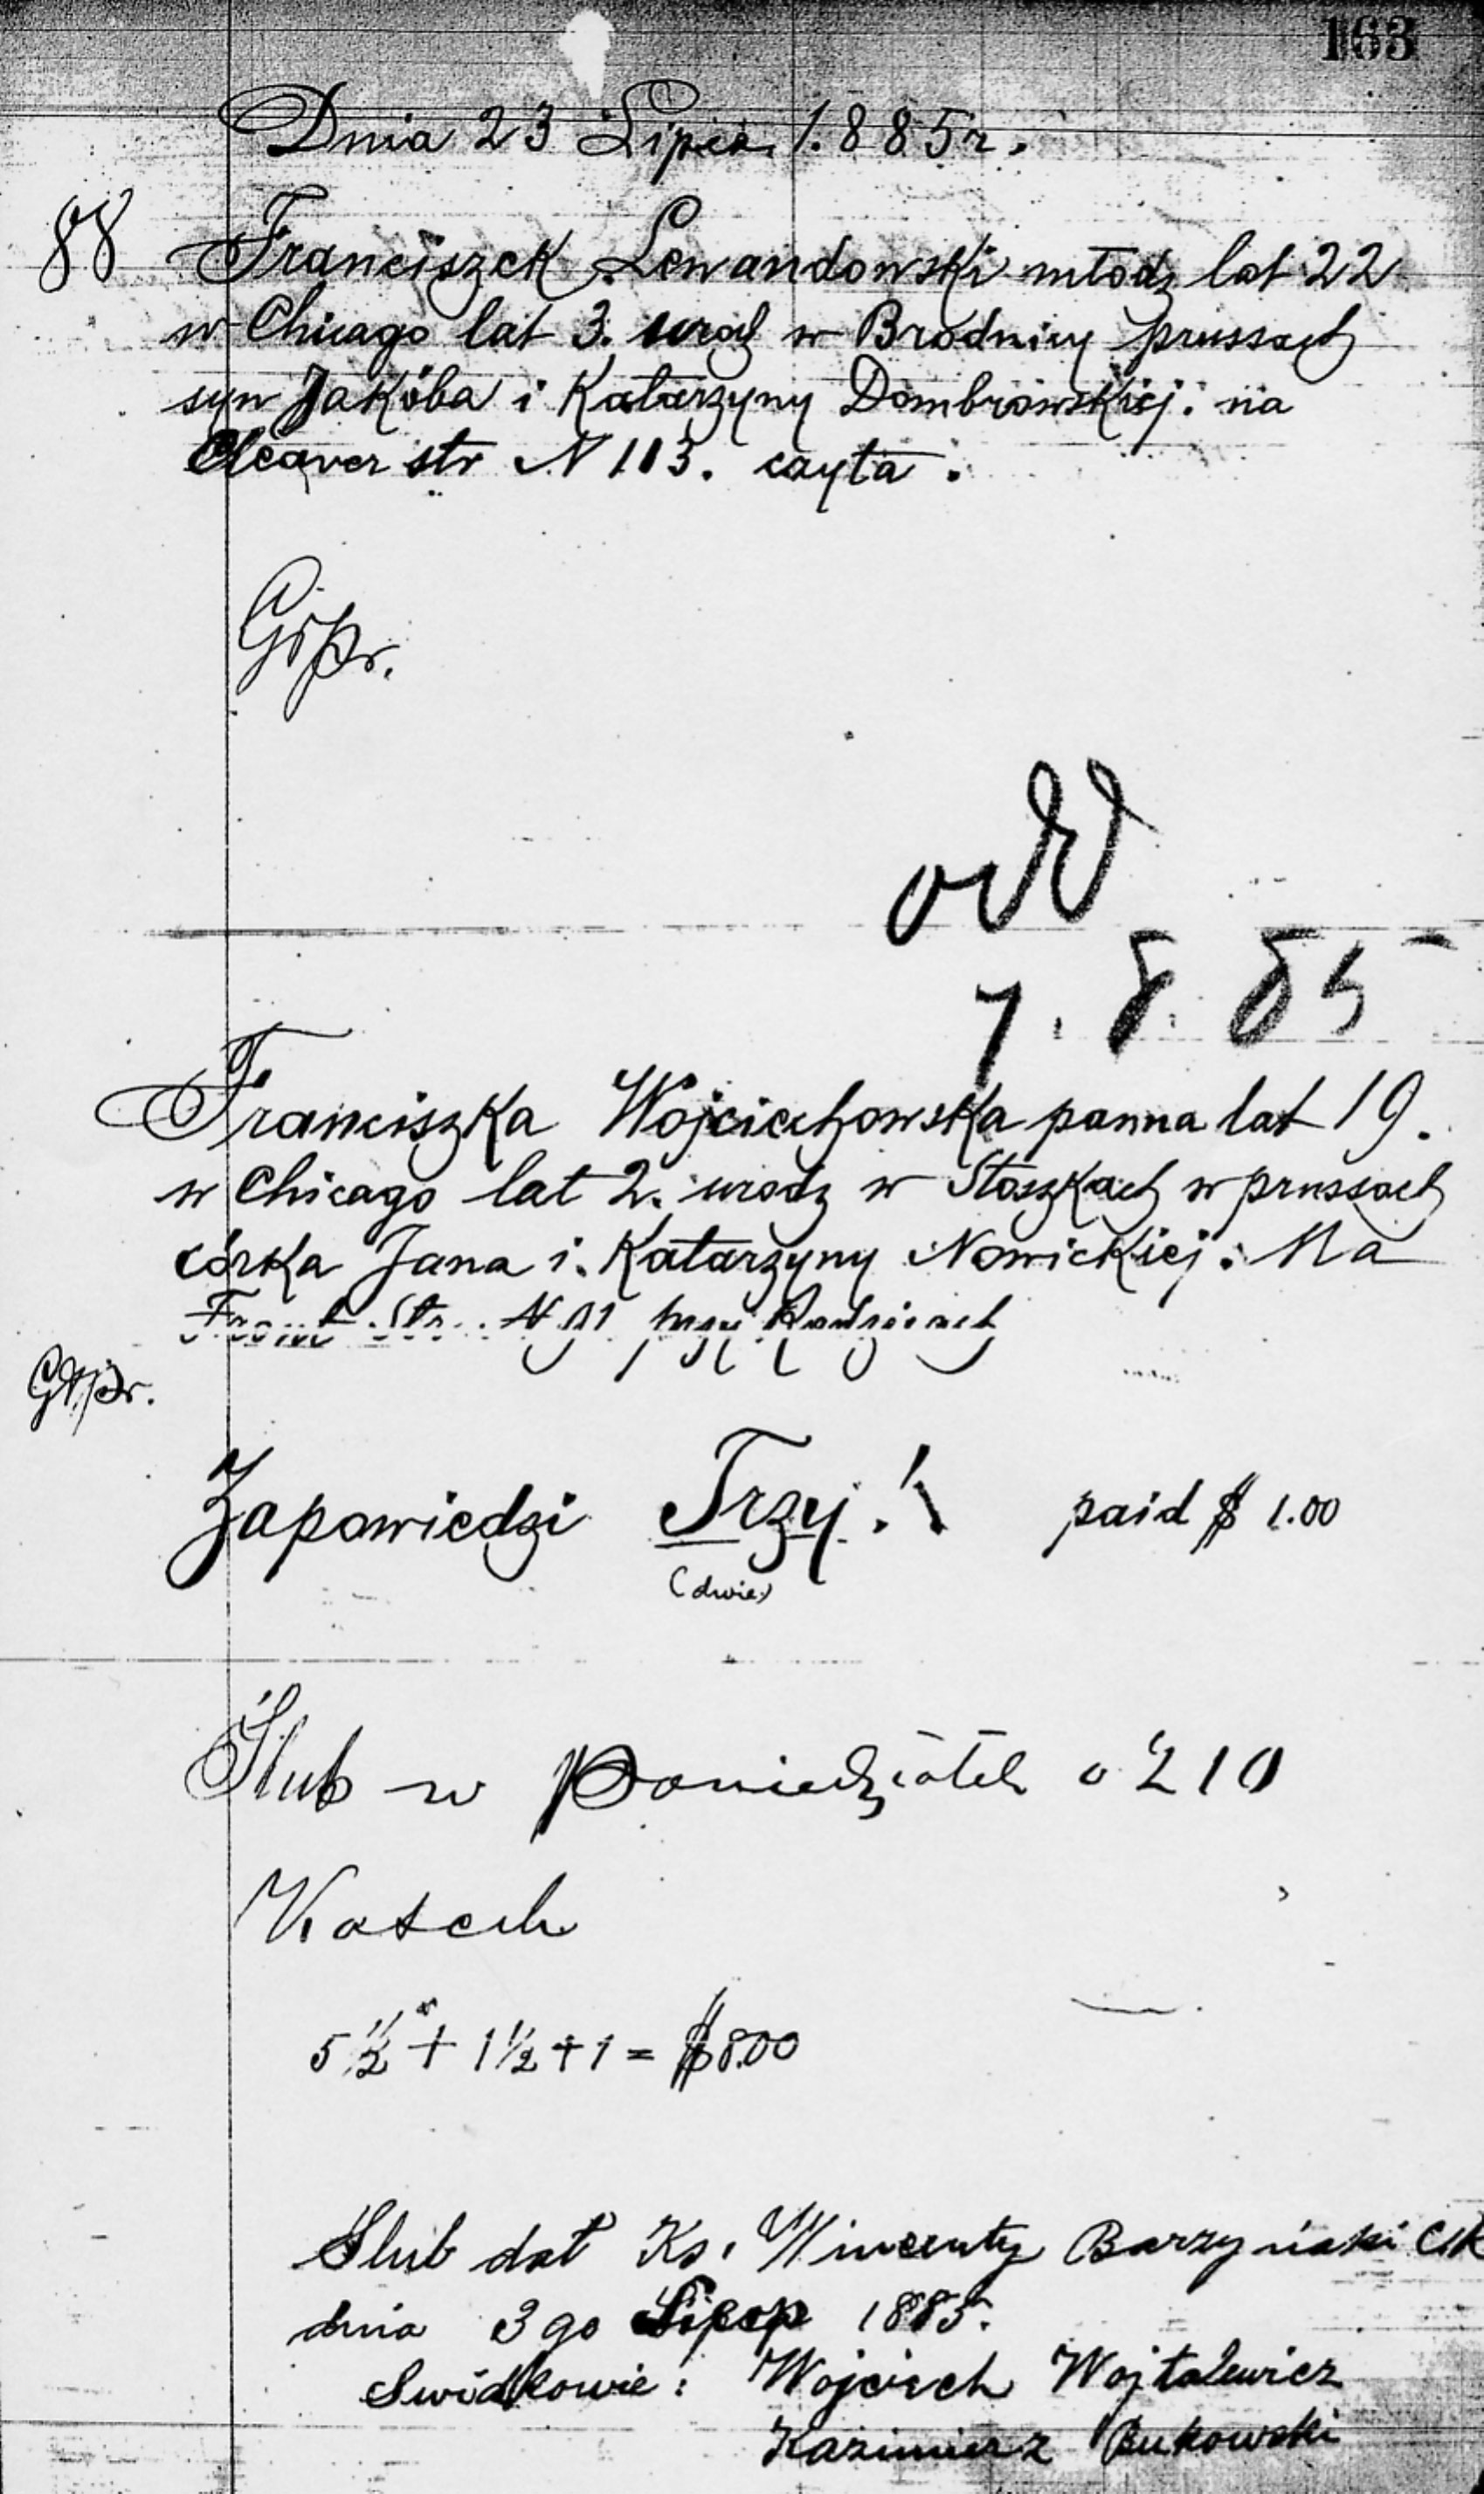 163
Dnia 23 Lipca 1.885r.
88 Franciszek Lewandowski młodz lat 22
w Chicago lat 3. urodz w Brodnicy prussach
syn Jakóba i Katarzyny Dombrowskiej. na
Cleaver str N 113. czyta.
7. 8. 85
Franciszka Wojciechowska panna lat 19.
w Chicago lat 2. urodz w Stoszkach w prussach
córka Jana i Katarzyny Nowickiej. Na
Front Str. N 91 przy Rodzicach
Zapowiedzi Trzy.! paid $ 1.00
(dwie)
Ślub w Poniedziałek o 210
5 1/2 + 1 1/2 + 1 = $8.00
Slub dał Ks. Wincenty Barzyński CR
dnia 3go 1885.
Swiadkowie: Wojciech Wojtalewicz
Kazimierz Bukowski